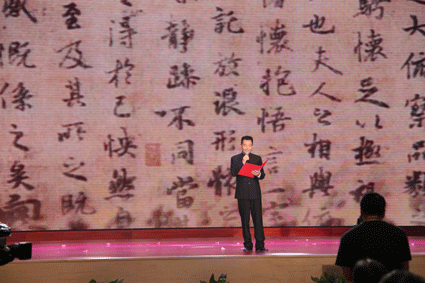 大俯察品類
騁懷足以極視
也夫人之相與俯
懷抱悟言一
託放浪形骸
静躁不同當
得於己快然自
至及其所之既
慨係之矣向